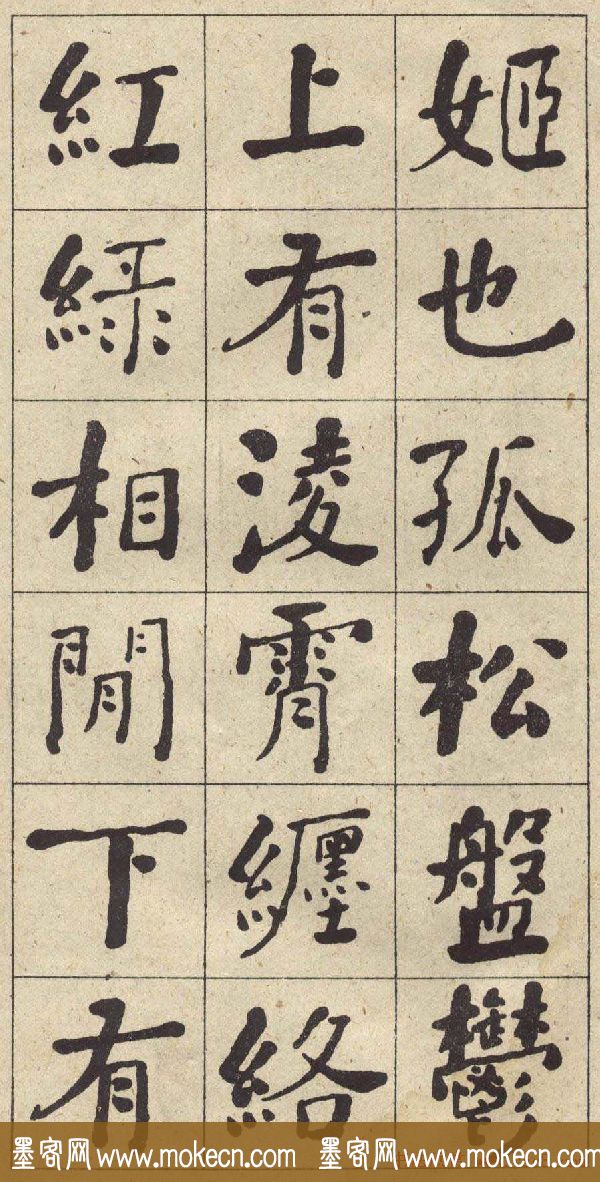 姬也孤松盤鬱
上有淩霄纏絡
紅綠相間下有
墨客网 www.mokecn.com 墨客网 www.mokecn.com